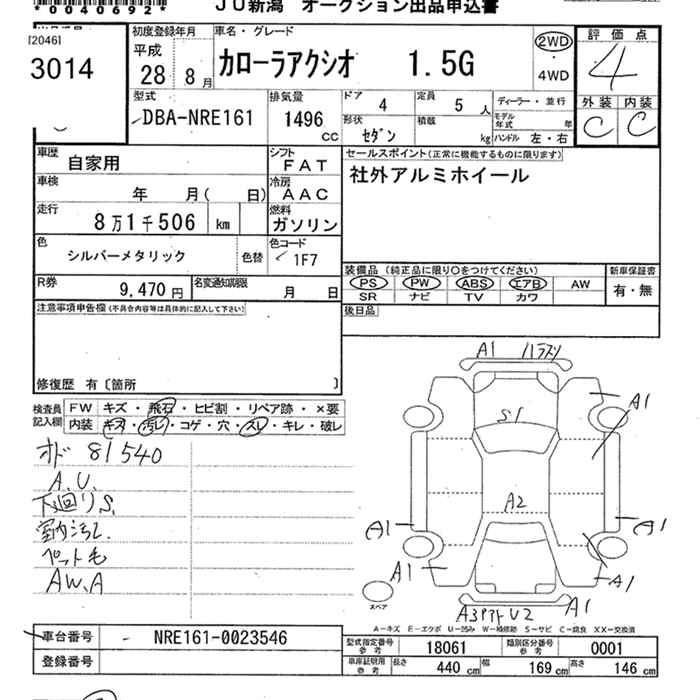 *0040692*
JU新潟 オークション出品申込書
[2046]
3014
初度登録年月
平成
28 8 月
車名・グレード
カローラアクシオ 1.5G
2WD
4WD
評価点
4
外装 内装
C C
型式
DBA-NRE161
排気量
1496
cc
ドア 4
定員 5 人
ディーラー・並行
形状
セダン
積載
kg
モデル年式 年
ハンドル 左・右
車歴
自家用
シフト
FAT
セールスポイント(正常に機能するものに限ります)
社外アルミホイール
車検
年 月( 日)
冷房
AAC
走行
8万1千506 km
燃料
ガソリン
色
シルバーメタリック
色替
色コード
1F7
装備品(純正品に限り○をつけてください)
新車保証書
PS PW ABS エアB AW
有・無
SR ナビ TV カワ
R券
9,470 円
名変通知期限
月 日
後日品
注意事項申告欄(不具合内容等は具体的に記入して下さい)
修復歴 有〔箇所 〕
検査員記入欄
FW キズ・飛石・ヒビ割・リペア跡・×要
内装 キズ・汚レ・コゲ・穴・スレ・キレ・破レ
オド 81540
A.U.
下廻りS.
室内汚レ.
ペット毛
AW.A
A1
A1
S1
A2
A1
A1
A1
A1
A1
U2
スペア
A-キズ E-エクボ U-凹み W-補修跡 S-サビ C-腐食 XX-交換済
車台番号
NRE161-0023546
登録番号
型式指定番号
参考
18061
類別区分番号
参考
0001
車庫証明用
参考
長さ 440 cm 幅 169 cm 高さ 146 cm